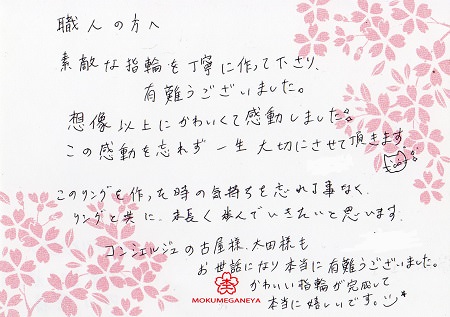 職人の方へ
素敵な指輪を丁寧に作って下さり、
有難うございました。
想像以上にかわいくて感動しました。
この感動を忘れず一生大切にさせて頂きます。
このリングを作った時の気持ちを忘れる事なく、
リングと共に、末長く歩んでいきたいと思います。
コンシェルジュの古屋様、太田様も
お世話になり本当に有難うございました。
かわいい指輪が完成して
本当に嬉しいです。
MOKUMEGANEYA